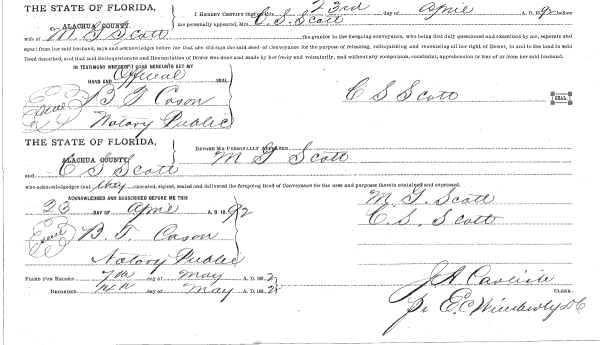 THE STATE OF FLORIDA,
ALACHUA COUNTY
I HEREBY CERTIFY that on this 23rd day of April A. D. 1892 before
me personally appeared, Mrs. C. S. Scott
wife of M. G Scott the grantor in the foregoing conveyance, who being first duly questioned and examined by me, separate and
apart from her said husband, says and acknowledges before me that she did sign the said deed of Conveyance for the purpose of releasing, relinquishing and renouncing all her right of Dower, in and to the land in said
Deed described, and that said Relinquishment and Renunciation of Dower was done and made by her freely and voluntarily, and without any compulsion, constraint, apprehension or fear of or from her said husband.
IN TESTIMONY WHEREOF I HAVE HEREUNTO SET MY
HAND AND Official SEAL
Seal B T Cason C S Scott SEAL
Notary Public
THE STATE OF FLORIDA,
ALACHUA COUNTY
BEFORE ME PERSONALLY APPEARED
M G Scott
and C S Scott
who acknowledges that they executed, signed, sealed and delivered the foregoing Deed of Conveyance for the uses and purposes therein contained and expressed.
ACKNOWLEDGED AND SUBSCRIBED BEFORE ME THIS M. G. Scott
23 DAY OF April A. D. 1892 C. S. Scott
Seal B. T. Cason
Notary Public
FILED FOR RECORD 7th day of May A. D. 1892 J A Carlisle
RECORDED day of May A. D. 189 CLERK.
pr E. C. Wimberly DC